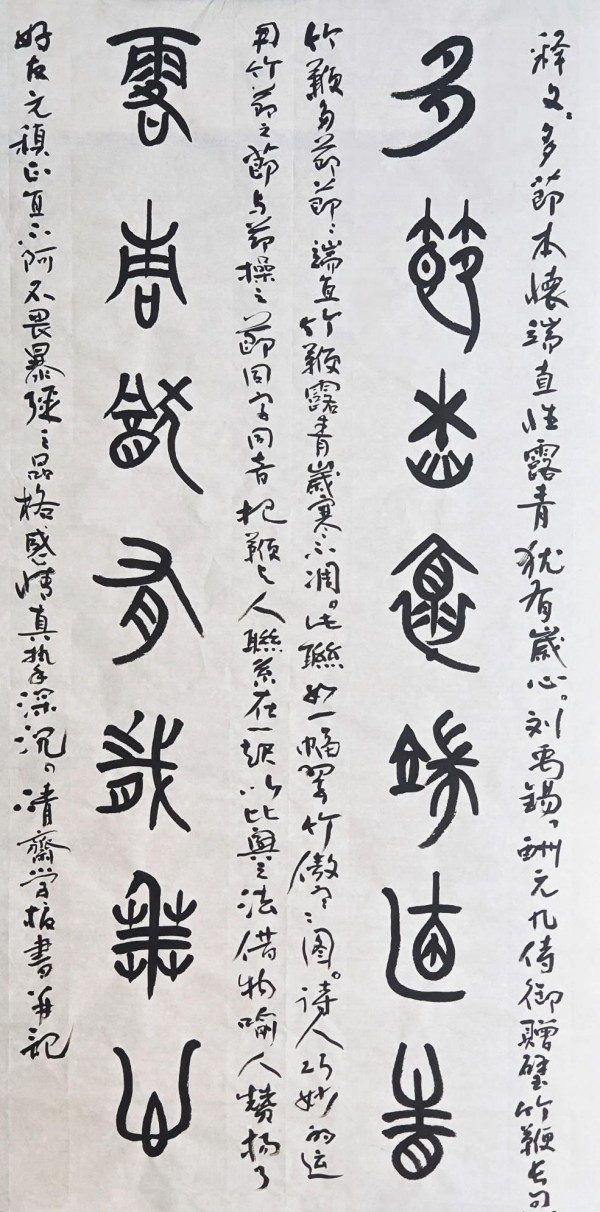 释文:多節本懷端直性露青犹有歲心。刘禹锡,酬元九侍御赠壁竹鞭长句
多節本懷端直性
竹鞭多節節〻端直竹鞭露青歲寒不凋。此聯如一幅翠竹傲寒之图。诗人巧妙的运
用竹節之節与節操之節同字同音把鞭与人聯系在一起以比興之法借物喻人赞扬了
露青猶有歲寒心
好友元稹正直不阿不畏暴强之品格感情真挚深沉。清齋学栢書并記